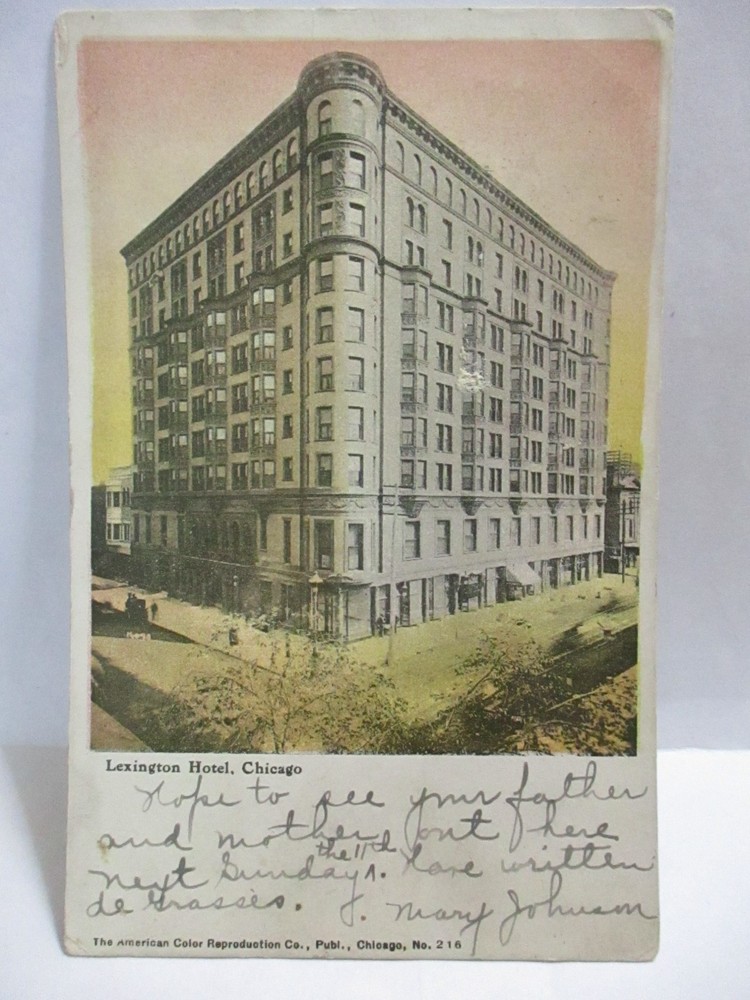 Lexington Hotel, Chicago
Hope to see your father
and mother out here
next Sunday the 11th. Have written
de Grasses. J. Mary Johnson
The American Color Reproduction Co., Publ., Chicago, No. 216